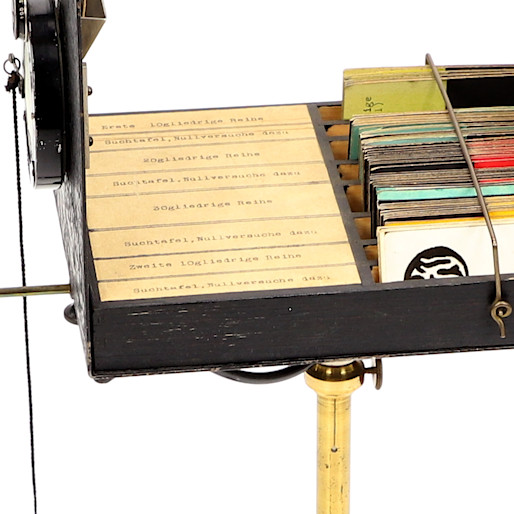 Erste 10gliedrige Reihe
Suchtafel,Nullversuche dazu
20gliedrige Reihe
Suchtafel,Nullversuche dazu
30gliedrige Reihe
Suchtafel,Nullversuche dazu
Zweite 10gliedrige Reihe
Suchtafel,Nullversuche dazu.